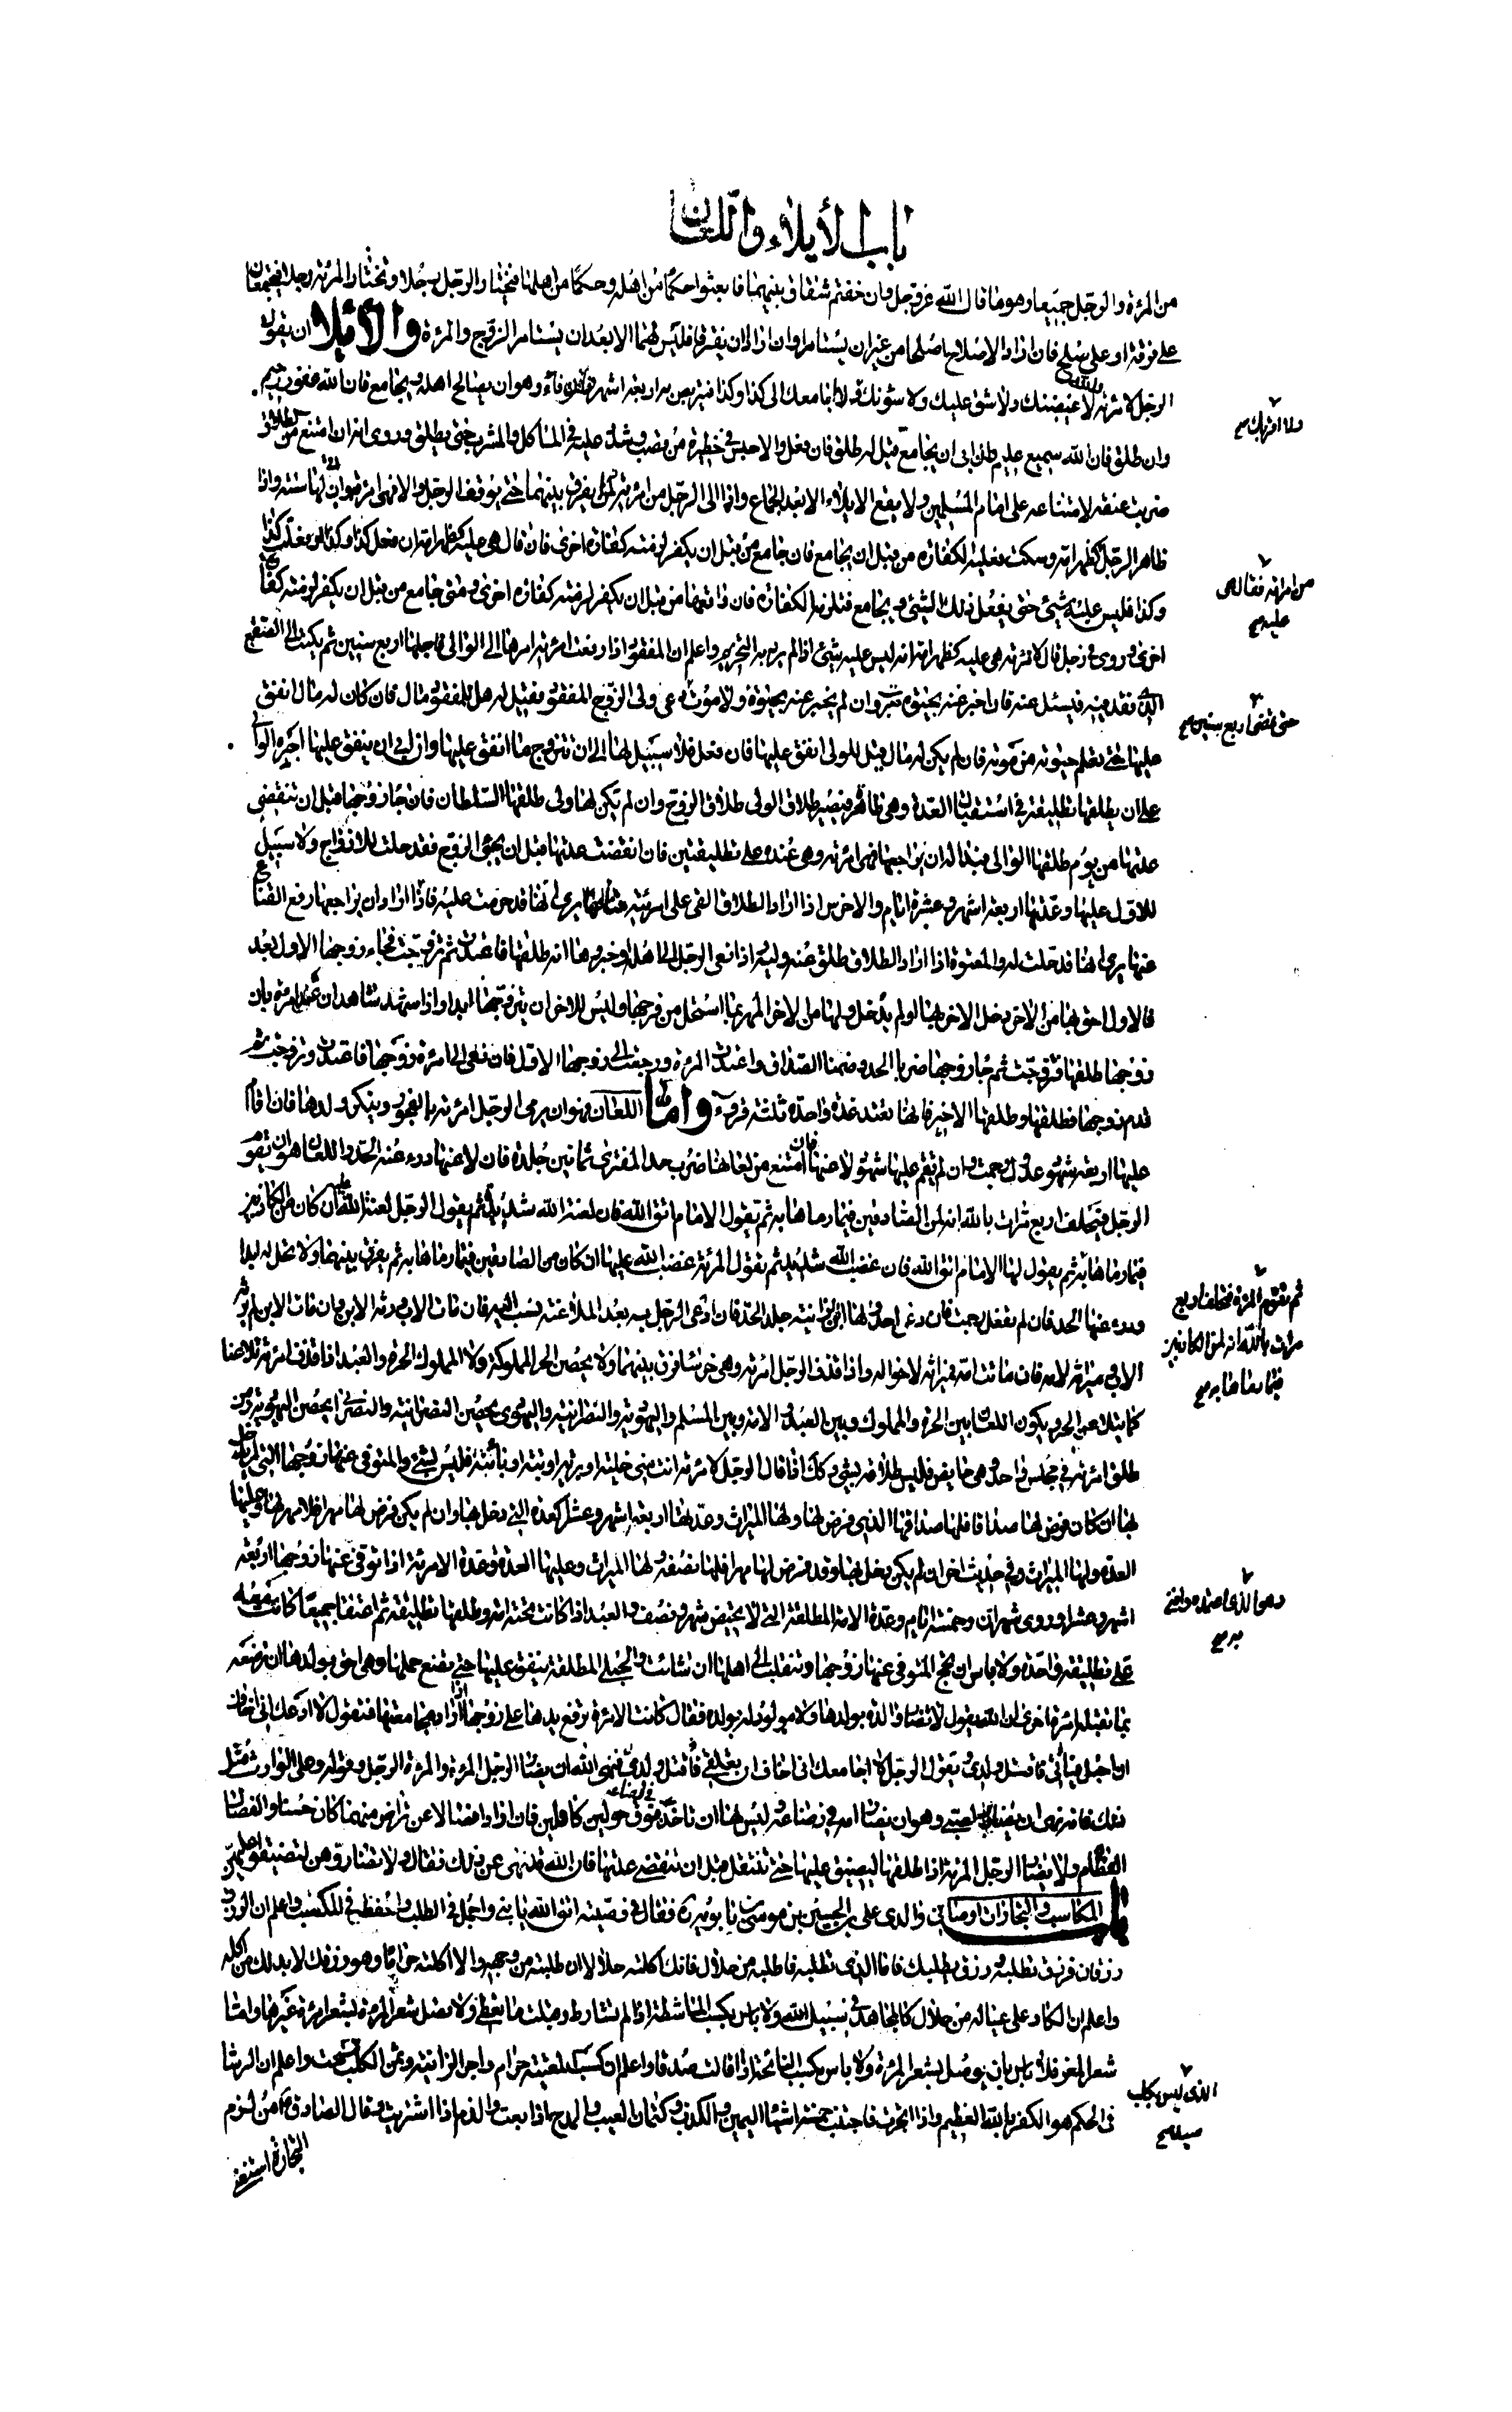 باب الأيلاء واللعان
من المرئة والرجل جميعا وهو ما قال الله عز وجل فان خفتم شقاق بينهما فابعثوا حكما من اهله وحكما من اهلها فيختار الرجل رجلا وتختار المرئة رجلا فيجتمعان
على فرقة او على صلح فان اراد الاصلاح اصلحا من غير ان يستامرا وان ارادا ان يفرقا فليس لهما الا بعد ان يستامر الزوج والمرئة والأيلا ان يقول
الرجل لامرئته والله لاغيضنك ولاشق عليك ولاسؤنك ولا اجامعك الى كذا وكذا فيتربص به اربعة اشهر فان فاء وهو ان يصالح اهله ويجامع فان الله غفور رحيم
ولا اقربك صح
وان طلق فان الله سميع عليم فان ابى ان يجامع قيل له طلق فان فعل والا حبس في حظيرة من قصب وشدد عليه في المأكل والمشرب حتى يطلق وروى انه ان امتنع من الطلاق
ضربت عنقه لامتناعه على امام المسلمين ولا يقع الايلاء الا بعد الجماع واذا الى الرجل من امرئته لم يفرق بينهما حتى يوقف الرجل والا فهى امرئته وان اتى لها سنة واذا
ظاهر الرجل كظهر امه وسكت فعليه الكفارة من قبل ان يجامع فان جامع من قبل ان يكفر لزمته كفارة اخرى فان قال هى عليه كظهر امه ان فعل كذا وكذا او فعلت كذا
من امرئته فقال هى
عليه صح
وكذا فليس عليه شيئ حتى يفعل ذلك الشيئ ويجامع فتلزمه الكفارة فان واقعها من قبل ان يكفر لزمته كفارة اخرى ومتى جامع من قبل ان يكفر لزمته كفارة
اخرى وروى في رجل قال لامرئته هى عليه كظهر امه انه ليس عليه شيئ اذا لم يرد به التحريم واعلم ان المفقود اذا رفعت امرئته امرها الى الوالى فاجلها اربع سنين ثم يكتب الى الصقع
الذى فقد فيه فيسئل عنه فان اخبر عنه بحيوة صبرت وان لم يخبر عنه بحيوة ولا موت دعى ولى الزوج المفقود فقيل له هل للمفقود مال فان كان له مال انفق
حتى تمضى اربع سنين صح
عليها حتى تعلم حيوته من موته فان لم يكن له مال قيل للولى انفق عليها فان فعل فلا سبيل لها الى ان تتزوج ما انفق عليها وان ابى ان ينفق عليها اجبره الوالى
على ان يطلقها تطليقة في استقبال العدة وهى طاهر فيصير طلاق الولى طلاق الزوج وان لم يكن لها ولى طلقها السلطان فان جاء زوجها قبل ان تنقضى
عدتها من يوم طلقها الوالى فبدا له ان يراجعها فهى امرئته وهى عنده على تطليقتين فان انقضت عدتها قبل ان يجيئ الزوج فقد حلت للازواج ولا سبيل
للاول عليها وعدتها اربعة اشهر وعشرة ايام والاخرس اذا اراد الطلاق القى على امرئته قناعها يرى انها قد حرمت عليه فاذا اراد ان يراجعها رفع القناع
عنها يرى انها قد حلت له والمعتوه اذا اراد الطلاق طلق عنه وليه اذا نعى الرجل الى اهله او خبروها انه طلقها فاعتدت ثم تزوجت فجاء زوجها الاول بعد
فالاول احق بها من الاخر دخل الاخر بها او لم يدخل ولها من الاخر المهر بما استحل من فرجها وليس للاخر ان يتزوجها ابدا واذا شهد شاهدان عند امرئة بان
زوجها طلقها فتزوجت ثم جاء زوجها ضربا الحد وضمنا الصداق واعتدت المرئة ورجعت الى زوجها الاول فان نعى الى امرئة زوجها فاعتدت وتزوجت ثم
قدم زوجها فطلقها وطلقها الاخير فانها تعتد عدة واحدة ثلثة قروء واما اللعان فهو ان يرمى الرجل امرئته بالفجور وينكر ولدها فان اقام
عليها اربعة شهود عدول رجمت وان لم يقم عليها شهودا لاعنها فان امتنع من لعانها ضرب حد المفترى ثمانين جلدة فان لاعنها درء عنه الحد واللعان هو ان يقوم
الرجل فيحلف اربع مرات بالله انه لمن الصادقين فيما رماها به ثم يقول الامام اتق الله فان لعنة الله شديدة ثم يقول الرجل لعنة الله عليه ان كان من الكاذبين
فيما رماها به ثم يقول لها الامام اتق الله فان غضب الله شديد ثم تقول المرئة غضب الله عليها ان كان من الصادقين فيما رماها به ثم يفرق بينهما ولا تحل له ابدا
ثم تقوم المرئة فتحلف اربع
مرات بالله انه لمن الكاذبين
فيما رماها به صح
ودرء عنها الحد فان لم تفعل رجمت فان دعى احد ولدها ابن الزانية جلد الحد فان ادعى الرجل به بعد الملاعنة نسب اليه فان مات الاب ورثه الابن وان مات الابن لم يرثه
الاب ميراثه لامه فان ماتت امه فميراثه لاخواله واذا قذف الرجل امرئته وهى خرساء فرق بينهما ولا يحصن الحر المملوكة ولا المملوك الحرة والعبد اذا قذف امرئته تلاعنا
كما يتلاعن الحر ويكون اللعان بين الحرة والمملوك وبين العبد والامة وبين المسلم واليهودية والنصرانية واليهودى يحصن النصرانية والنصرانى يحصن اليهودية ومن
طلق امرئته في مجلس واحد وهى حايض فليس طلاقه بشيئ وكذا اذا قال الرجل لامرئته انت منى خلية او برية او بتة او بائنة فليس بشيئ والمتوفى عنها زوجها التى لم يدخل
بها ان كان فرض لها صداقا فلها صداقها الذى فرض لها ولها الميراث وعدتها اربعة اشهر وعشرا كعدة التى دخل بها وان لم يكن فرض لها مهرا فلا مهر لها وعليها
العدة ولها الميراث وفي حديث اخر ان لم يكن دخل بها وقد فرض لها مهرا فلها نصفه ولها الميراث وعليها العدة وعدة الامرئة اذا توفى عنها زوجها اربعة
اشهر وعشرا وروى شهران وخمسة ايام وعدة الامة المطلقة التى لا تحيض شهر ونصف والعبد اذا كانت تحته امة وطلقها تطليقة ثم اعتقا جميعا كانت معه
وهى الذى اعتمده وافتى
به صح
على تطليقة واحدة ولا باس ان تحج المتوفى عنها زوجها وتنقلب الى اهلها ان شائت والحبلى المطلقة ينفق عليها حتى تضع حملها وهى احق بولدها ان ترضعه
بما تقبله امرئة اخرى ان الله يقول لا تضار والدة بولدها ولا مولود له بولده فقال كانت الامرئة ترفع يدها على زوجها اذا اراد مجامعتها فتقول لا ادعك انى اخاف
ان احبل فاقتل ولدى ويقول الرجل لا اجامعك انى اخاف ان تعلقى فاقتل ولدى فنهى الله ان يضار الرجل المرئة والمرئة الرجل وقوله وعلى الوارث مثل
ذلك فانه نهى ان يضار بالصبى وهو ان يضار امه في رضاعه وليس لها ان تاخذ في رضاعه فوق حولين كاملين فان ارادا فصالا عن تراض منهما كان حسنا والفصال
الفطام ولا يضار الرجل المرئة اذا طلقها ليضيق عليها حتى تنتقل قبل ان تنقضى عدتها فان الله قد نهى عن ذلك فقال ولا تضاروهن لتضيقوا عليهن
باب المكاسب والتجارات اوصانى والدى على بن الحسين بن موسى بن بابويه ره فقال في وصيته اتق الله يا بنى واجمل في الطلب واخفض في المكتسب واعلم ان الرزق
رزقان فرزق تطلبه ورزق يطلبك فاما الذى تطلبه فاطلبه من حلال فانك اكلته حلالا ان طلبته من وجهه والا اكلته حراما وهو رزقك لا بد لك من اكله
واعلم ان الكاد على عياله من حلال كالمجاهد في سبيل الله ولا باس بكسب الماشطة اذا لم تشارط وقبلت ما تعطى ولا تصل شعر المرئة بشعر امرئة غيرها واما
شعر المعز فلا باس بان يوصل بشعر المرئة ولا باس بكسب النائحة اذا قالت صدقا واعلم ان كسب المغنية حرام واجر الزانية وثمن الكلب سحت واعلم ان الرشا
الذى ليس بكلب
صيد صح
في الحكم هو الكفر بالله العظيم واذا اتجرت فاجتنب خمسة اشياء اليمين والكذب وكتمان العيب والمدح اذا بعت والذم اذا اشتريت وقال الصادق ع من لزم
التجارة استغنى